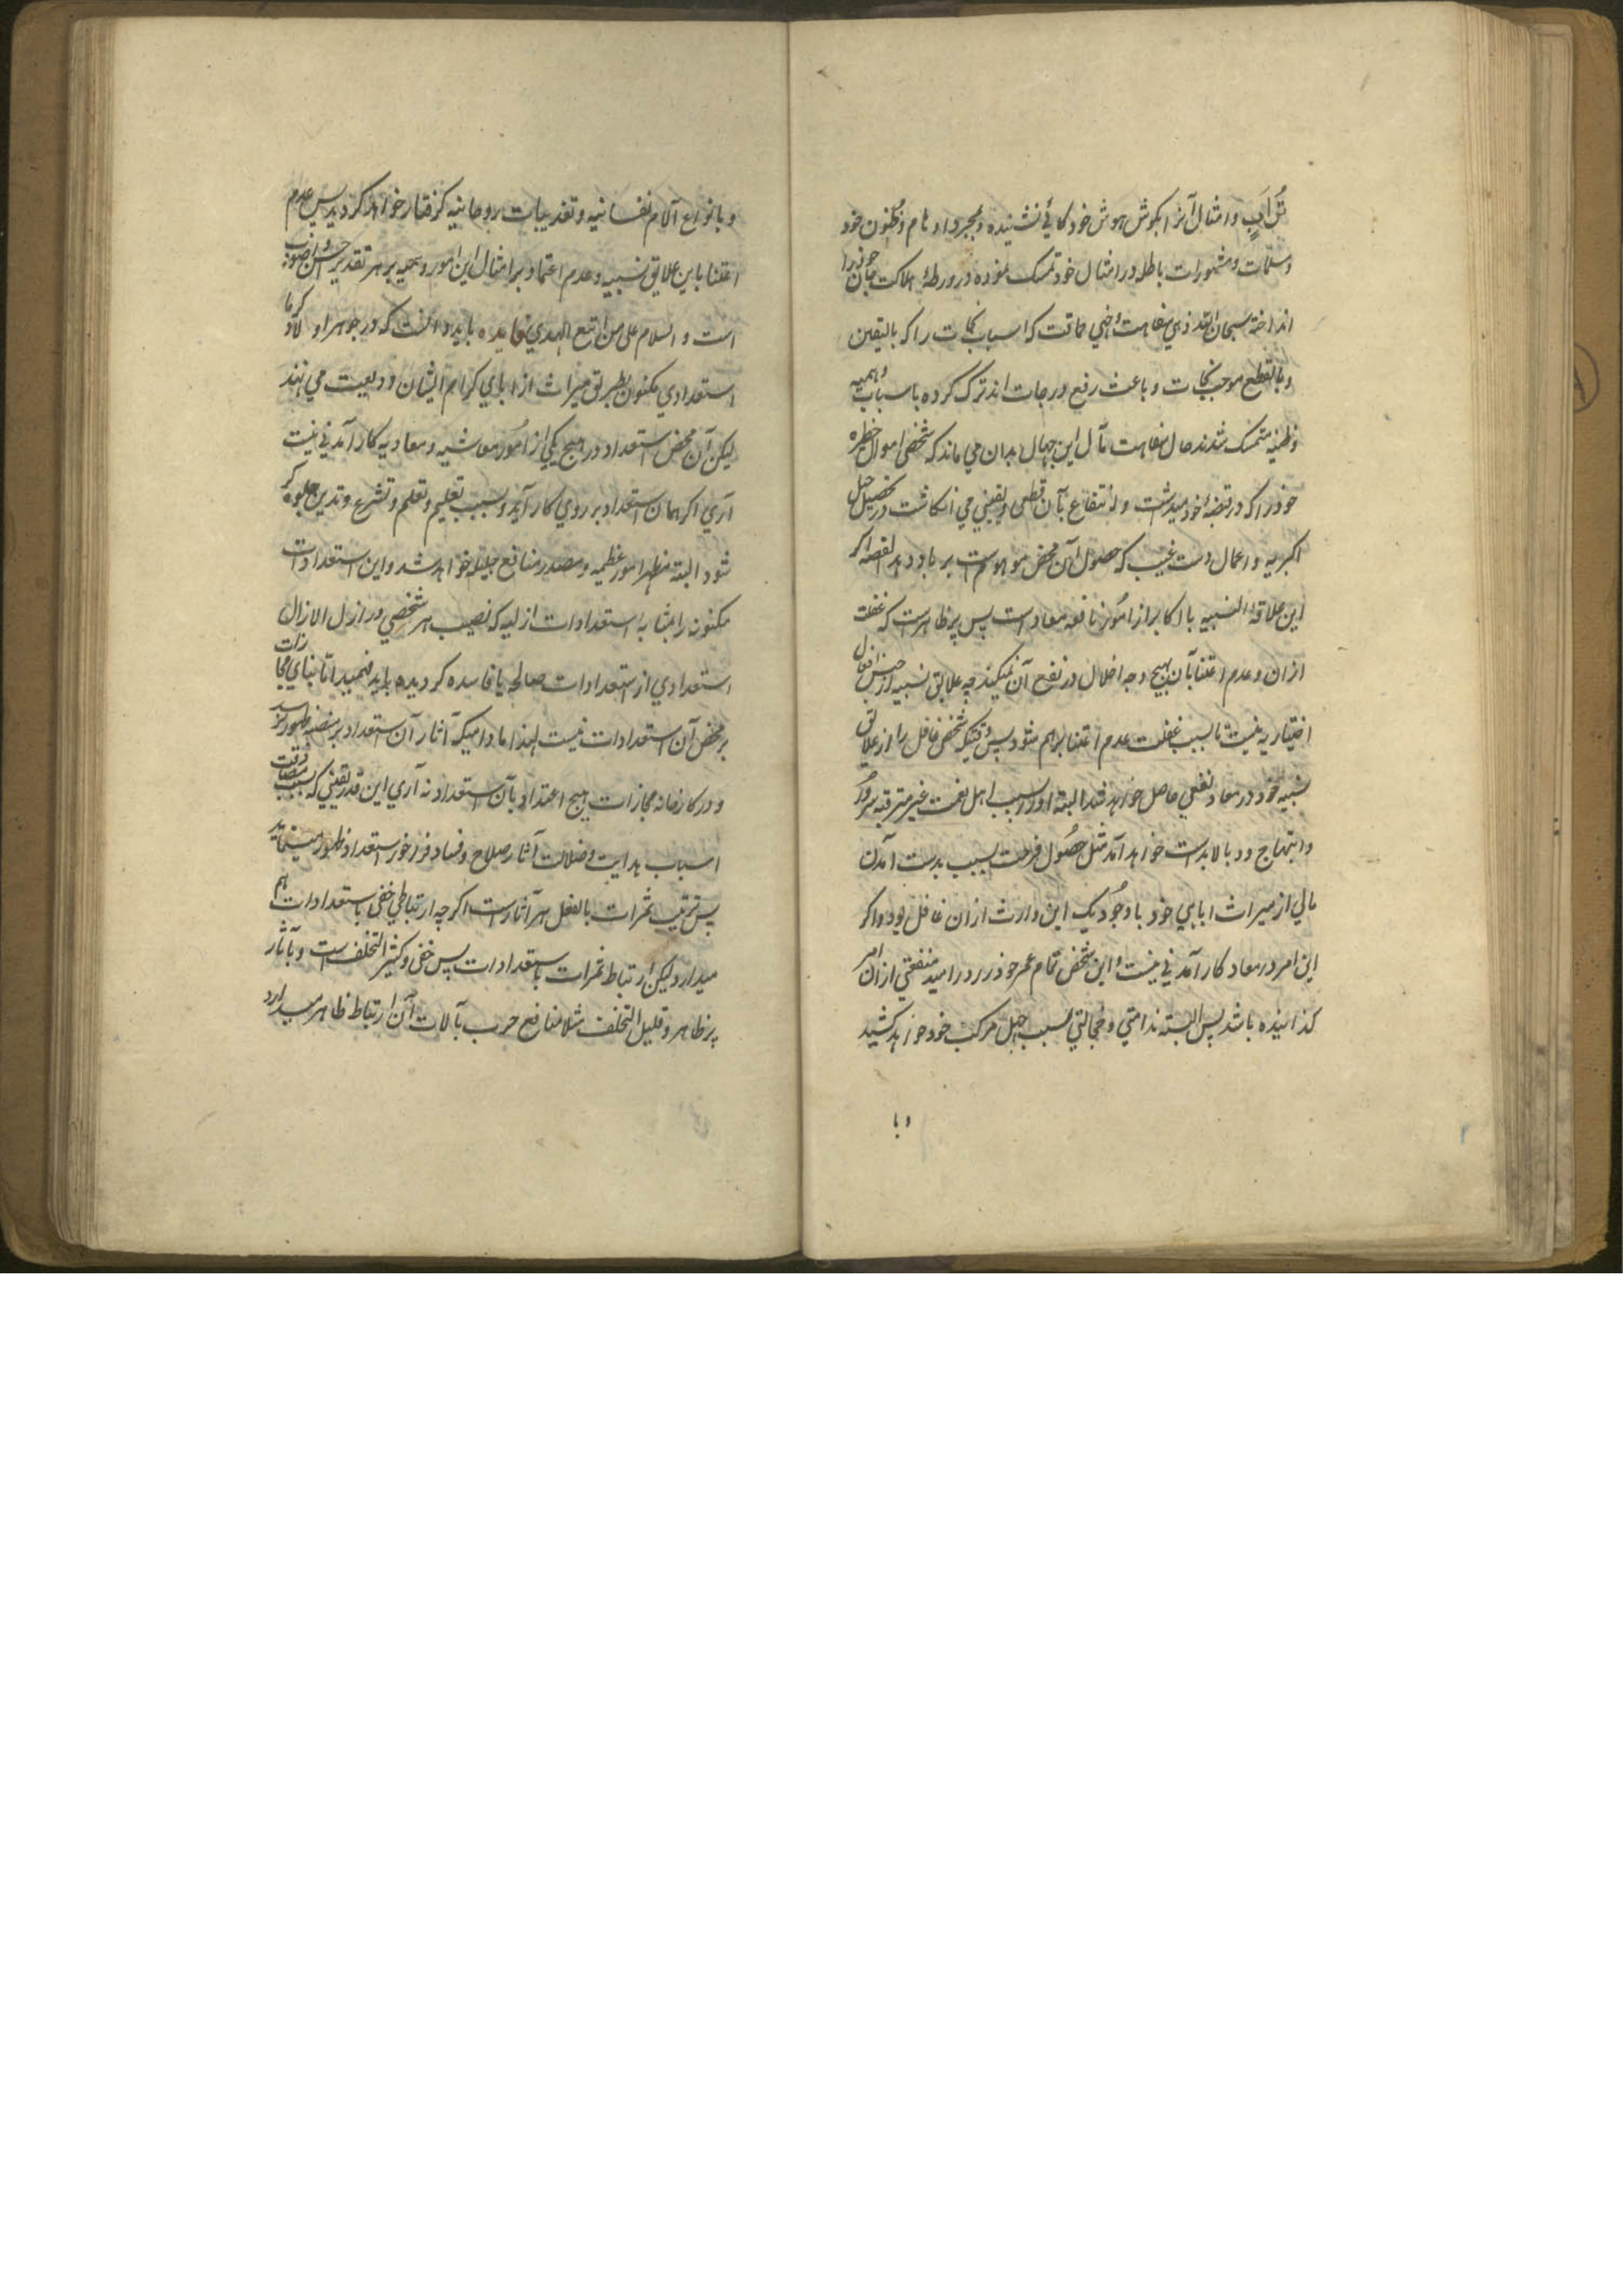 تُرَابٍ و امثال آنرا بگوش هوش خود گاهی نشنیده و بمجرد اوهام و ظنون خود
و مسلمات و مشهورات باطله در امثال خود تمسک نموده در ورطهٔ هلاکت جان خود را
انداخته سبحان الله زهی سفاهت و خهی حماقت که اسباب نجات را که بالیقین
و بالقطع موجب نجات و باعث رفع درجات اند ترک کرده باسباب وهمیه
و ظنیه متمسک شدند حال سفاهت مآل این جهال بدان می ماند که شخصی اموال خطیره
خود را که در قبضهٔ خود میداشت و انتفاع بآن قطعی و یقینی می انگاشت در تحصیل حیل
اکبریه و اعمال دست غیب که حصول آن محض موهوم است بر باد دهد القصه اگر
این علاقهٔ النسبیه با اکابر از امور نافعه معاد است پس پر ظاهرست که غفلت
ازان و عدم اعتنا بآن بهیچ وجه اخلال در نفع آن نمیکند چه علایق نسبیه از جنس افعال
اختیاریه نیست تا بسبب غفلت و عدم اعتنا برهم شود پس وقتیکه شخص غافل را از علایق
نسبیه خود در معاد نفعی حاصل خواهد شد البته او را بسبب اهل نعمت غیر مترقبه سرور
و ابتهاج دوبالا بدست خواهد آمد مثل حصول فرحت بسبب بدست آمدن
مالی از میراث ابای خود باوجودیکه این وارث ازان غافل بود و اگر
این امر در معاد کارآمدنی نیست و این شخص تمام عمر خود را در امید منفعتی ازان امر
گذرانیده باشد پس البته ندامتی و خجالتی بسبب جهل مرکب خود خواهد کشید
و با
و بانواع آلام نفسانیه و تعذیبات روحانیه گرفتار خواهد گردید پس عدم
اعتنا باین علایق نسبیه و عدم اعتماد بر امثال این امور وهمیه بر هر تقدیر احسن و اصوب
است و السلام علی من اتبع الهدی فایده باید دانست که در جوهر اولاد کرما
استعدادی مکنون بطریق میراث از ابای کرام ایشان ودیعت می نهند
لیکن آن محض استعداد در هیچ یکی از امور معاشیه و معادیه کارآمدنی نیست
آری اگر همان استعداد بر روی کار آید و بسبب تعلیم و تعلم و تشرع و تدین جلوه گر
شود البته مظهر امور عظیمه و مصدر منافع جلیله خواهد شد و این استعدادات
مکنونه را بمثابه استعدادات ازلیه که نصیب هر شخصی در ازل الازال
استعدادی از استعدادات صالحه یا فاسده گردیده باید فهمید اما بنای مجازات
بر محض آن استعدادات نیست لهذا مادامیکه آثار آن استعداد بر منصه ظهور نرسد
و در کارخانه مجازات هیچ اعتداد بآن استعداد نه آری این قدر یقینی که بسبب مصادفت
اسباب هدایت و ضلالت آثار صلاح و فساد فراخور استعداد ظهور مینماید
پس ترتب ثمرات بالفعل بر آثارست اگرچه ارتباطی خفی باستعدادات هم
میدارد لیکن ارتباط ثمرات باستعدادات پس خفی و کثیر التخلف است و بآثار
پر ظاهر و قلیل التخلف مثلا منافع حرب بآلات آن ارتباط ظاهر میدارد